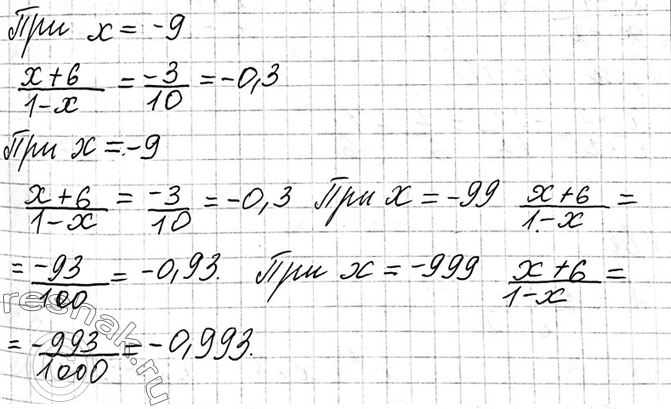 При x = -9
(x+6)/(1-x) = -3/10 = -0,3
При x = -9
(x+6)/(1-x) = -3/10 = -0,3 При x = -99 (x+6)/(1-x) =
= -93/100 = -0,93. При x = -999 (x+6)/(1-x) =
= -993/1000 = -0,993.
reshak.ru